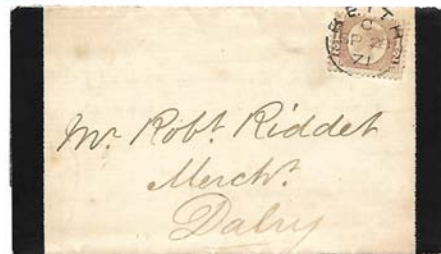 BEITH
C
SP 2
71
Mr. Robt. Riddet
Mercht.
Dalry